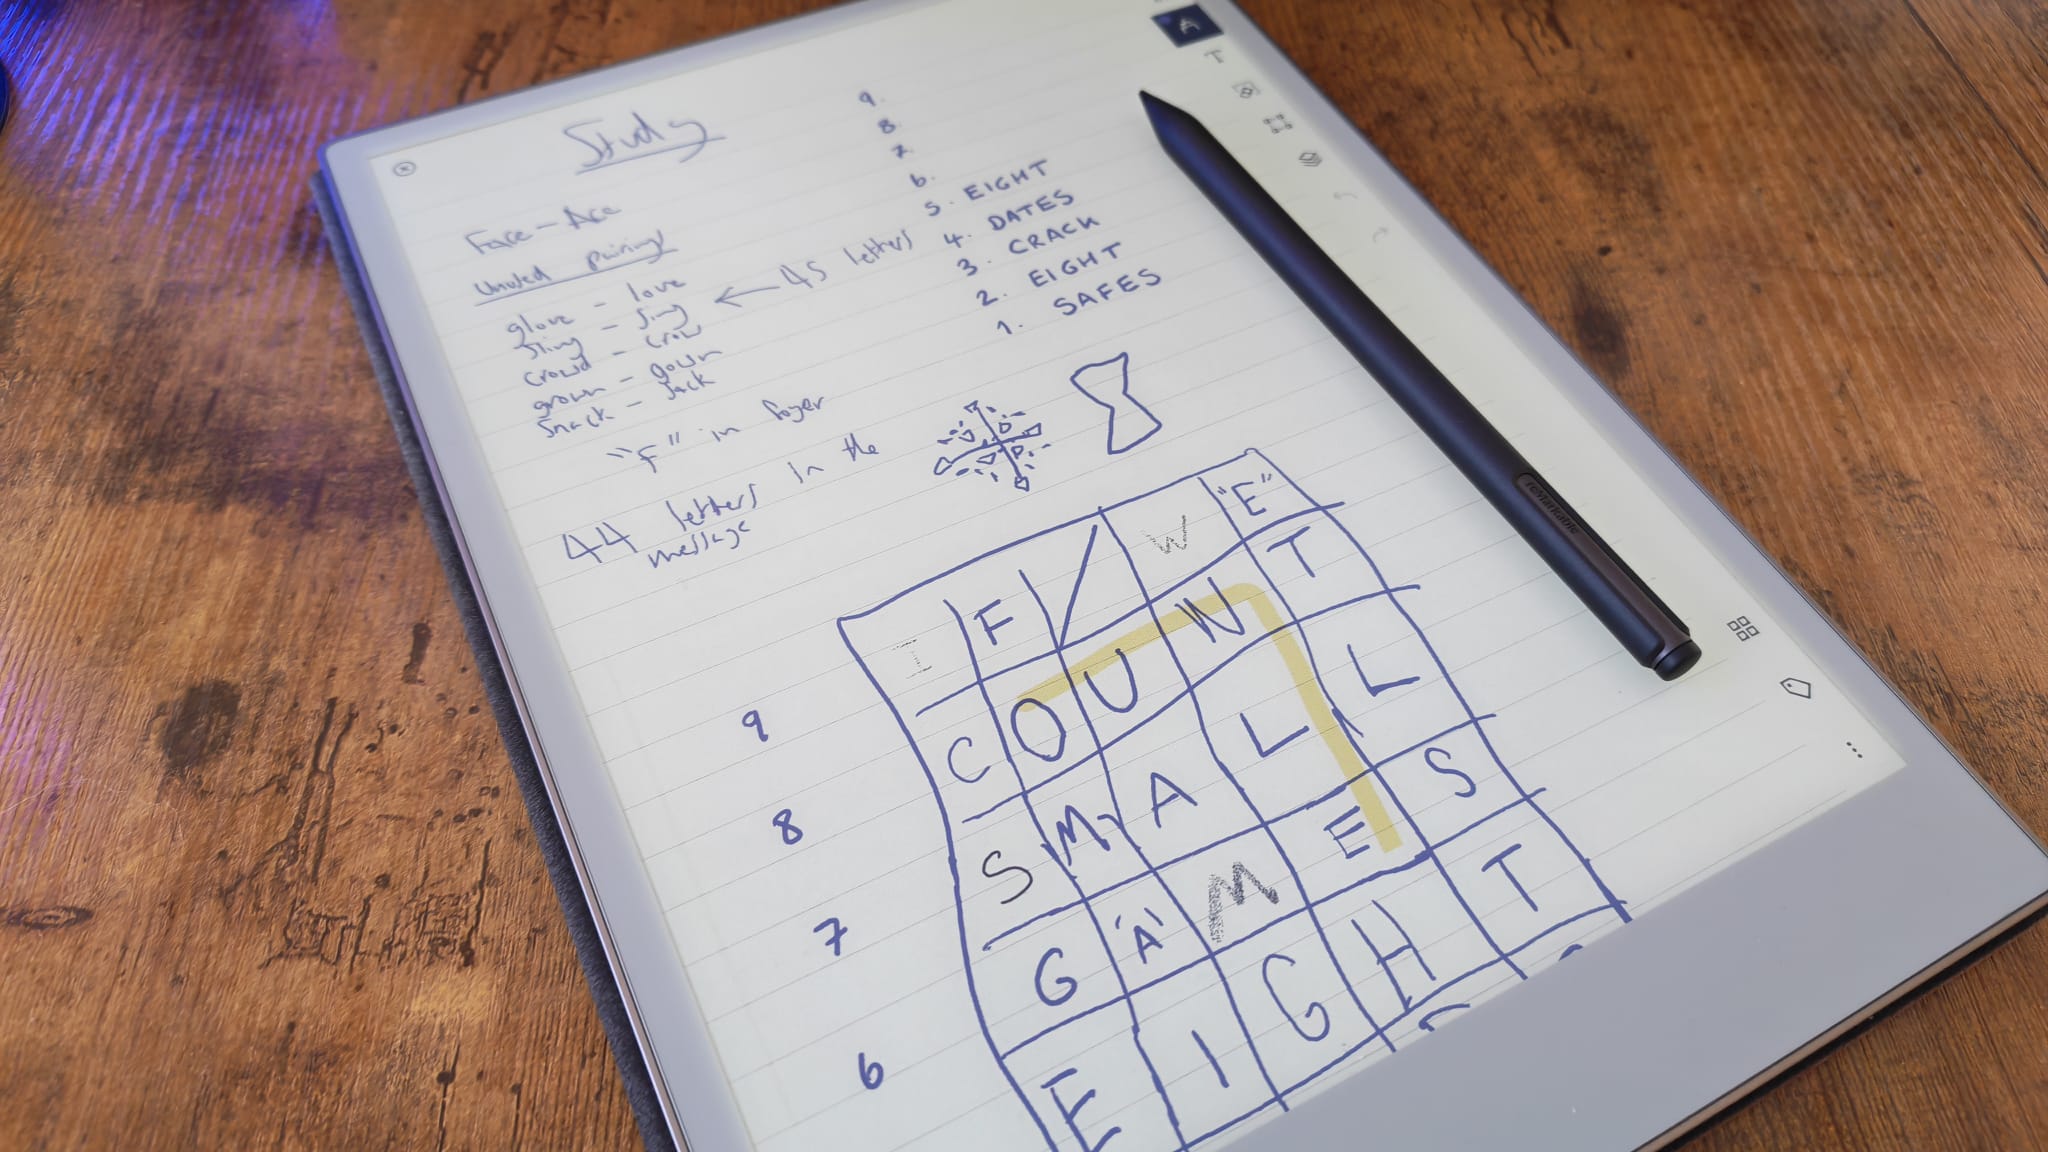 Study
Face - Ace
Unused pairings
glove - love
sling - sing
crowd - crow
grown - gown
snack - sack
← 45 letters
"F" in foyer
44 letters in the
message
9.
8.
7.
6.
5. EIGHT
4. DATES
3. CRACK
2. EIGHT
1. SAFES
I F / W "E"
9 C O U N T
8 S M A L L
7 G "A" M E S
6 E I G H T
T
reMarkable